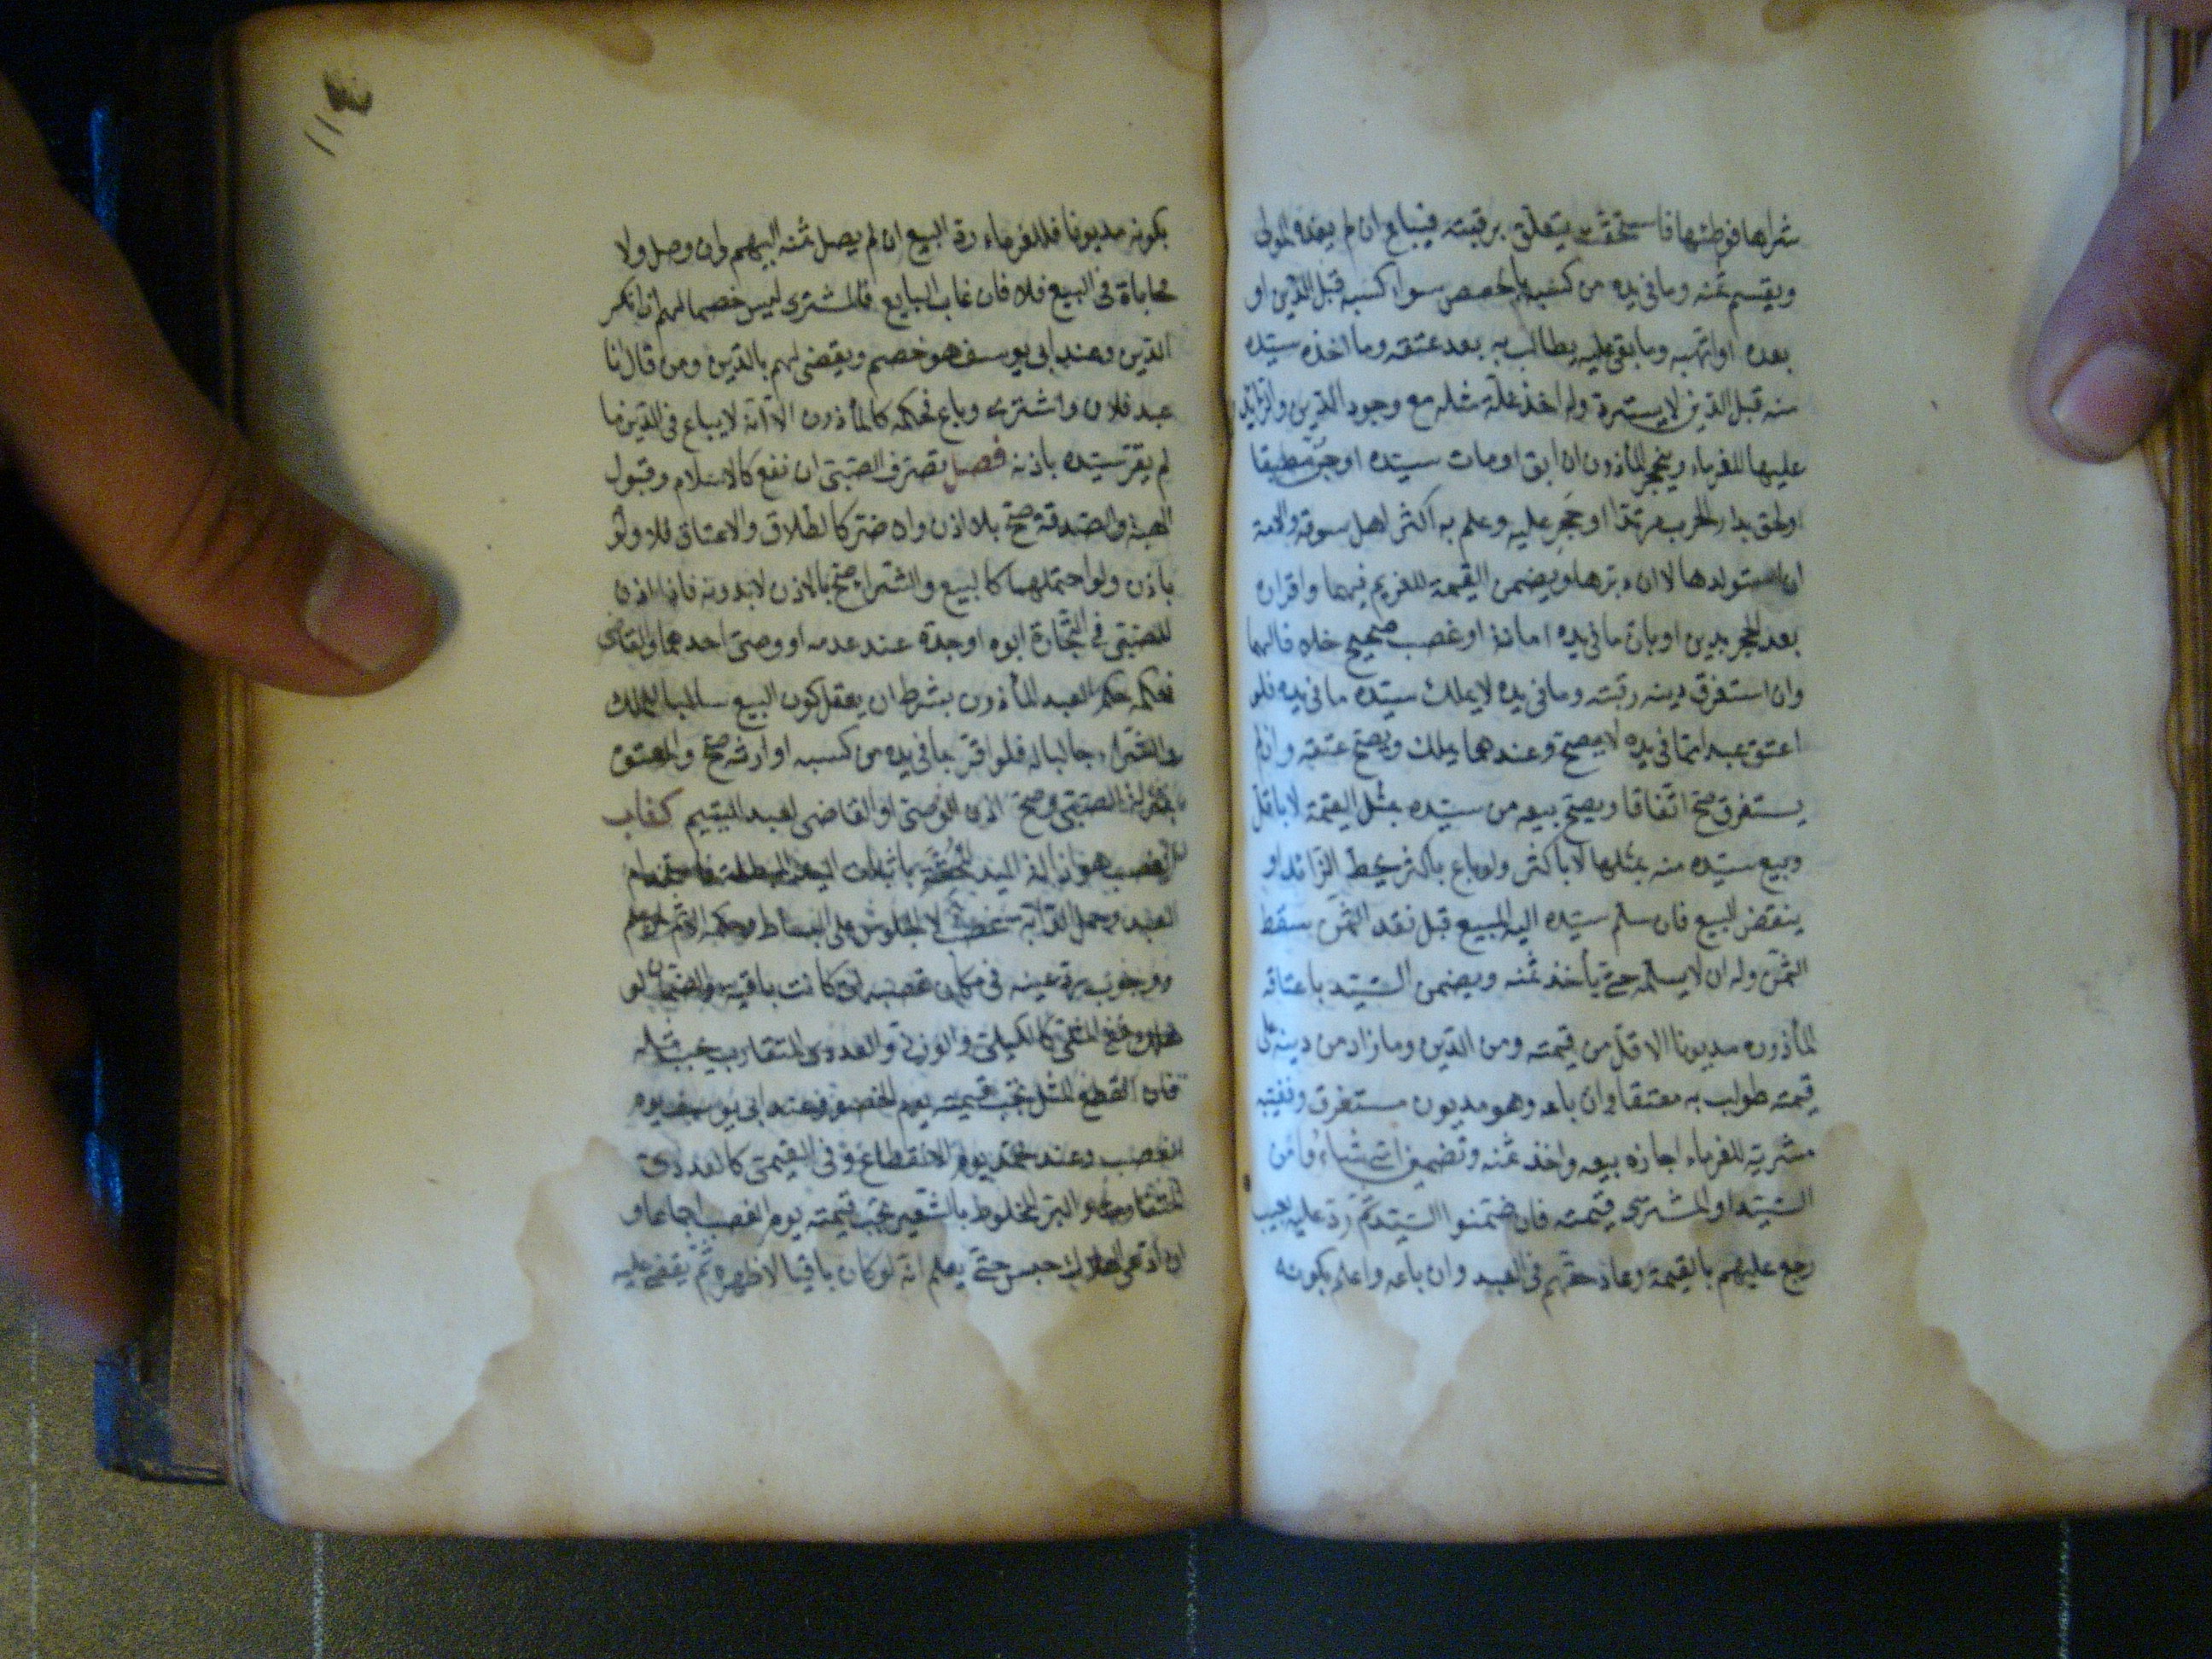 شراها فوطئها فاستحقت يتعلق برقبته فيباع ان لم يفده المولى
ويقسم ثمنه وما في يده من كسبه بالحصص سواء كسبه قبل الدين او
بعده او اتهبه وما بقي عليه يطالب به بعد عتقه وما اخذه سيده
منه قبل الدين لا يسترد وله اخذ غلة مثله مع وجود الدين والزائد
عليها للغرماء وينحجر المأذون ان ابق او مات سيده او جن مطبقا
او لحق بدار الحرب مرتدا او حجر عليه وعلم به اكثر اهل سوقه والامة
ان استولدها لا ان دبرها ويضمن القيمة للغريم فيهما واقراره
بعد الحجر بدين او بان ما في يده امانة او غصب صحيح خلافا لهما
وان استغرق دينه رقبته وما في يده لا يملك سيده ما في يده فلو
اعتق عبدا مما في يده لا يصح وعندهما يملك ويصح عتقه وان لم
يستغرق صح اتفاقا ويصح بيعه من سيده بمثل القيمة لا باقل
وبيع سيده منه بمثلها لا باكثر ولو باع باكثر يحط الزائد او
ينقض البيع فان سلم سيده اليه المبيع قبل نقد الثمن سقط
الثمن وله ان لا يسلمه حتى يأخذ ثمنه ويضمن السيد باعتاقه
المأذون مديونا الاقل من قيمته ومن الدين وما زاد من دينه على
قيمته طولب به معتقا وان باعه وهو مديون مستغرق وغيبه
مشتريه للغرماء اجازه بيعه واخذ ثمنه وتضمين اي شاءوا من
السيد او المشتري قيمته فان ضمنوا السيد ثم رد عليه بعيب
رجع عليهم بالقيمة وعاد حقهم في العبد وان باعه واعلم بكونه
١١٤
بكونه مديونا فللغرماء رد البيع ان لم يصل ثمنه اليهم وان وصل ولا
محاباة في البيع فلا فان غاب البايع فالمشتري ليس خصما لهم ان انكر
الدين وعند ابي يوسف هو خصم ويقضى لهم بالدين ومن قال انا
عبد فلان واشترى وباع فحكمه كالمأذون الا انه لا يباع في الدين ما
لم يقر سيده باذنه فصل تصرف الصبي ان نفع كالاسلام وقبول
الهبة والصدقة صح بلا اذن وان ضر كالطلاق والاعتاق فلا ولو
باذن ولو احتملهما كالبيع والشراء صح بالاذن لا بدونه فاذا اذن
للصبي في التجارة ابوه او جده عند عدمه او وصي احدهما والقاضي
فحكمه حكم العبد المأذون بشرط ان يعقل كون البيع سالبا للملك
والشراء جالبا له فلو اقر بما في يده من كسبه او ارثه صح والمعتوه
بمنزلة الصبي وصح اذن الوصي او القاضي لعبد اليتيم كتاب
الغصب هو ازالة اليد المحقة باثبات اليد المبطلة فاستخدام
العبد وحمل الدابة غصب لا الجلوس على البساط وحكمه الاثم لمن علم
ووجوب رد عينه في مكان غصبه ان كانت باقية والضمان لو
هلك ففي المثلي كالكيلي والوزني والعددي المتقارب يجب مثله
فان انقطع المثل تجب قيمته يوم الخصومة وعند ابي يوسف يوم
الغصب وعند محمد يوم الانقطاع وفي القيمي كالعددي
المتفاوت والبر المخلوط بالشعير تجب قيمته يوم الغصب اجماعا و
ان ادعى الهلاك حبس حتى يعلم انه لو كان باقيا لاظهره ثم يقضى عليه